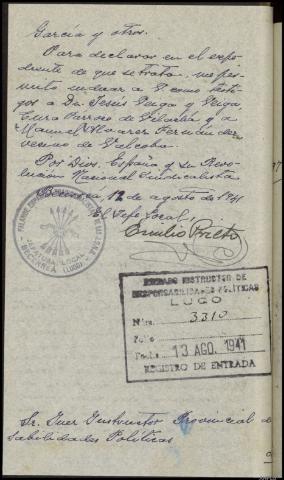 García y otros.
Para declarar en el expe-
diente de que se trata, me per-
mito indicar a V. como testi-
gos a Dn. Jesús Veiga y Veiga,
Cura Párroco de Vilacha, y a
Manuel Alvarez Fernández
vecino de Valcoba.
Por Dios, España y su Revo-
lución Nacional Sindicalista
12 de agosto de 1941
El Jefe Local,
Emilio Prieto
FALANGE ESPAÑOLA
JEFATURA LOCAL
BECERREÁ (LUGO)
JUZGADO INSTRUCTOR DE
RESPONSABILIDADES POLÍTICAS
LUGO
Núm. 3310
Folio
Fecha 13 AGO. 1941
REGISTRO DE ENTRADA
Sr. Juez Instructor Provincial de
sabilidades Políticas